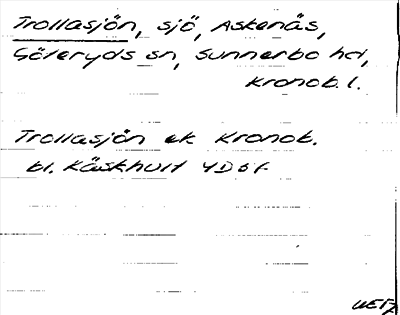 Trollasjön, sjö, Askenäs,
Göteryds sn, Sunnerbo hd,
Kronob. l.
Trollasjön ek Kronob.
bl. Käskhult 4D5f